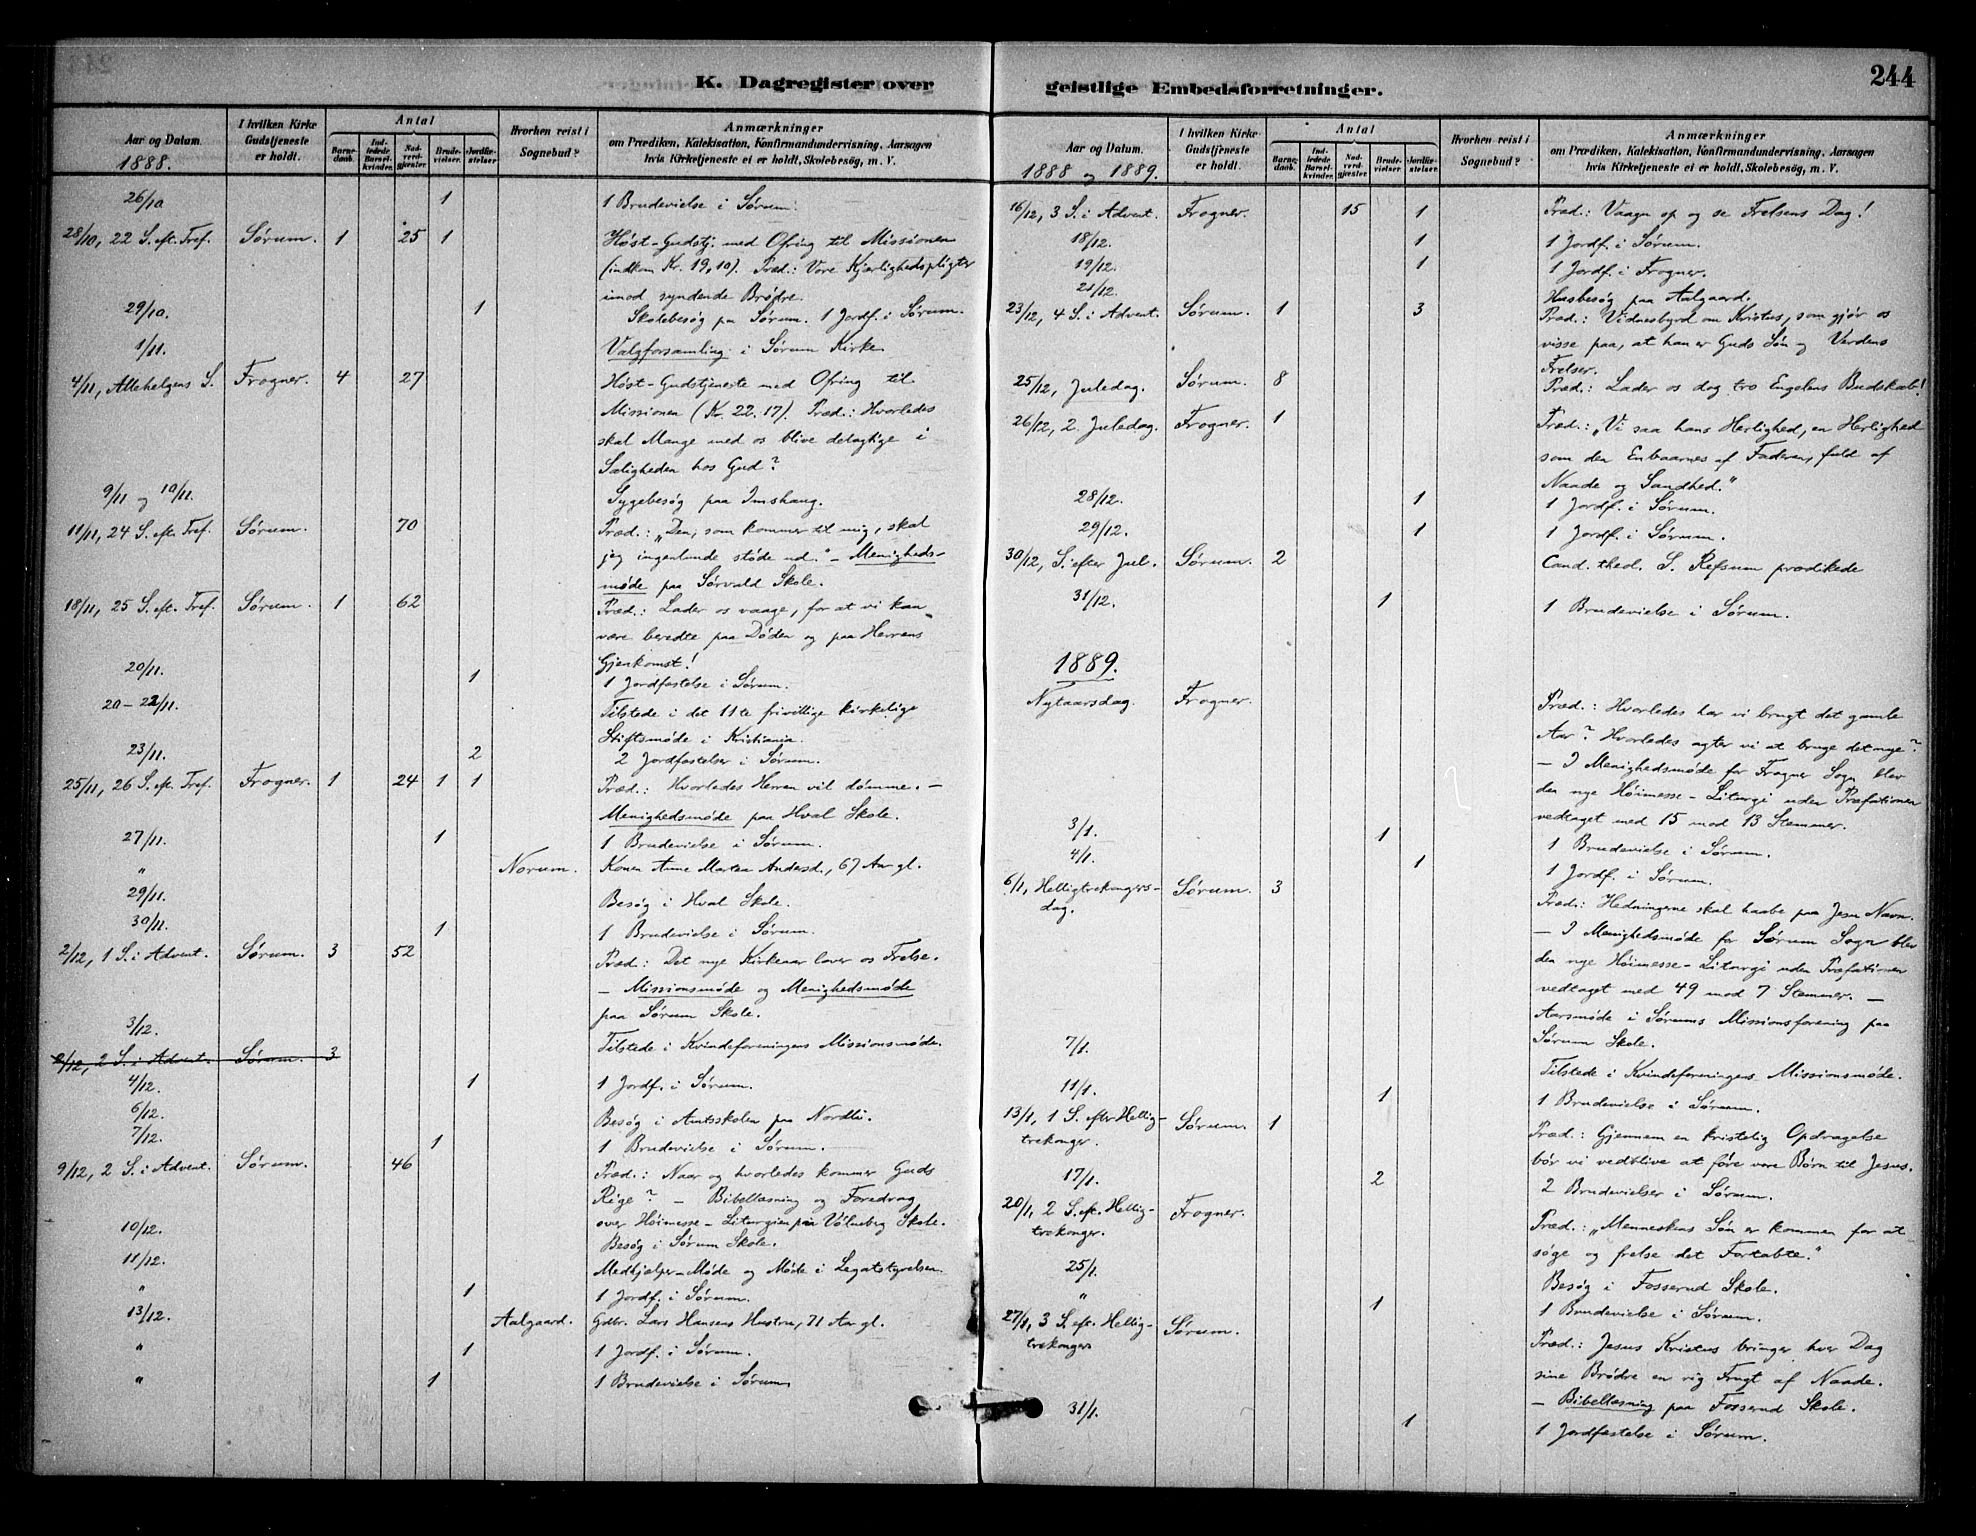 244
K. Dagregister over
Aar og Datum.
I hvilken Kirke Gudstjeneste er holdt.
Antal
Barnedaab.
Indledede Barselkvinder.
Nadverdgjæster.
Brudevielser.
Jordfæstelser
Hvorhen reist i Sognebud?
Anmærkninger
om Prædiken, Katekisation, Konfirmandundervisning, Aarsagen
hvis Kirketjeneste ei er holdt, Skolebesög, m. V.
1888.
26/10 1 1 Brudevielse i Sørum.
28/10, 22 S. eft. Tref. Sørum. 1 25 1 Høst-Gudstj. med Ofring til Missionen
(indkom Kr. 19,10). Præd.: Vore Kjærlighedspligter
imod syndende Brødre.
29/10. 1 Skolebesøg paa Sørum. 1 Jordf. i Sørum.
1/11. Valgforsamling i Sørum Kirke
4/11, Allehelgens S. Frogner. 4 27 Høst-Gudstjeneste med Ofring til
Missionen (Kr. 22.17). Præd.: Hvorledes
skal Mange med os blive delagtige i
Saligheden hos Gud?
9/11 og 10/11. Sygebesøg paa Imshaug.
11/11, 24 S. eft. Tref. Sørum. 70 Præd.: „Den, som kommer til mig, skal
jeg ingenlunde støde ud." – Menigheds-
møde paa Sørvald Skole.
18/11, 25 S. eft. Tref. Sørum. 1 62 Præd.: Lader os vaage, for at vi kan
være beredte paa Døden og paa Herrens
Gjenkomst!
20/11. 1 1 Jordfæstelse i Sørum.
20–22/11. Tilstede i det 11te frivillige kirkelige
Stiftsmøde i Kristiania.
23/11. 2 2 Jordfæstelser i Sørum.
25/11, 26 S. eft. Tref. Frogner. 1 24 1 1 Præd.: Hvorledes Herren vil dømme. –
Menighedsmøde paa Hval Skole.
27/11. 1 1 Brudevielse i Sørum.
" Norum. Konen Anne Martea Andersd., 67 Aar gl.
29/11. Besøg i Hval Skole.
30/11. 1 1 Brudevielse i Sørum.
2/12, 1 S. i Advent. Sørum. 3 52 Præd.: Det nye Kirkeaar lover os Frelse.
– Missionsmøde og Menighedsmøde
paa Sørum Skole.
3/12. Tilstede i Kvindeforeningens Missionsmøde.
2/12, 2 S. i Advent. Sørum. 3
4/12. 1 1 Jordf. i Sørum.
6/12. Besøg i Amtsskolen paa Nordli.
7/12. 1 1 Brudevielse i Sørum.
9/12, 2 S. i Advent. Sørum. 46 Præd.: Naar og hvorledes kommer Guds
Rige? – Bibellæsning og Foredrag
over Høimesse-Liturgien paa Vølneberg Skole.
10/12. Besøg i Sørum Skole.
11/12. Medhjælper-Møde og Møde i Legatstyrelsen.
" 1 1 Jordf. i Sørum.
13/12. Aalgaard. Gdbr. Lars Hansens Hustru, 71 Aar gl.
" 1 1 Jordf. i Sørum.
" 1 1 Brudevielse i Sørum
geistlige Embedsforretninger.
244
Aar og Datum.
I hvilken Kirke Gudstjeneste er holdt.
Antal
Barnedaab.
Indledede Barselkvinder.
Nadverdgjæster.
Brudevielser.
Jordfæstelser.
Hvorhen reist i Sognebud?
Anmærkninger
om Prædiken, Katekisation, Konfirmandundervisning, Aarsagen
hvis Kirketjeneste ei er holdt, Skolebesög, m. V.
1888 og 1889.
16/12, 3 S. i Advent. Frogner. 15 1 Præd.: Vaagn op og se Frelsens Dag!
18/12. 1 1 Jordf. i Sørum.
19/12. 1 1 Jordf. i Frogner.
21/12. Husbesøg paa Aalgaard.
23/12, 4 S. i Advent. Sørum. 1 3 Præd.: Vidnesbyrd om Kristus, som gjør os
visse paa, at han er Guds Søn og Verdens
Frelser.
25/12, Juledag. Sørum. 8 Præd.: Lader os dog tro Engelens Budskab!
26/12, 2. Juledag. Frogner. 1 Præd.: „Vi saa hans Herlighed, en Herlighed
som den Enbaarnes af Faderen, fuld af
Naade og Sandhed."
28/12. 1 1 Jordf. i Sørum.
29/12. 1 1 Jordf. i Sørum.
30/12, S. efter Jul. Sørum. 2 Cand. theol. S. Refsum prædikede
31/12. 1 1 Brudevielse i Sørum.
1889.
Nytaarsdag. Frogner. Præd.: Hvorledes har vi brugt det gamle
Aar? Hvorledes agter vi at bruge det nye?
– I Menighedsmøde for Frogner Sogn blev
den nye Høimesse-Liturgi uden Præfationen
vedtaget med 15 mod 13 Stemmer.
3/1. 1 1 Brudevielse i Sørum.
4/1. 1 1 Jordf. i Sørum.
6/1, Helligtrekongers- Sørum. 3 Præd.: Hedningerne skal haabe paa Jesu Navn.
dag. – I Menighedsmøde for Sørum Sogn blev
den nye Høimesse-Liturgi uden Præfationen
vedtaget med 49 mod 7 Stemmer. –
Aarsmøde i Sørums Missionsforening paa
Sørum Skole.
7/1. Tilstede i Kvindeforeningens Missionsmøde.
11/1. 1 1 Brudevielse i Sørum.
13/1, 1 S. efter Hellig- Sørum. 1 Præd.: Gjennem en kristelig Opdragelse
trekonger. bør vi vedblive at føre vore Børn til Jesus.
17/1. 2 2 Brudevielser i Sørum.
20/1, 2 S. eft. Hellig- Frogner. Præd.: „Menneskens Søn er kommen for at
trekonger. søge og frelse det Fortabte."
25/1. Besøg i Fosserud Skole.
" 1 1 Brudevielse i Sørum.
27/1, 3 S. eft. Hellig- Sørum. Præd.: Jesus Kristus bringer hver Dag
trekonger sine Brødre en rig Frugt af Naade.
– Bibellæsning paa Fosserud Skole.
31/1. 1 1 Jordfæstelse i Sørum.